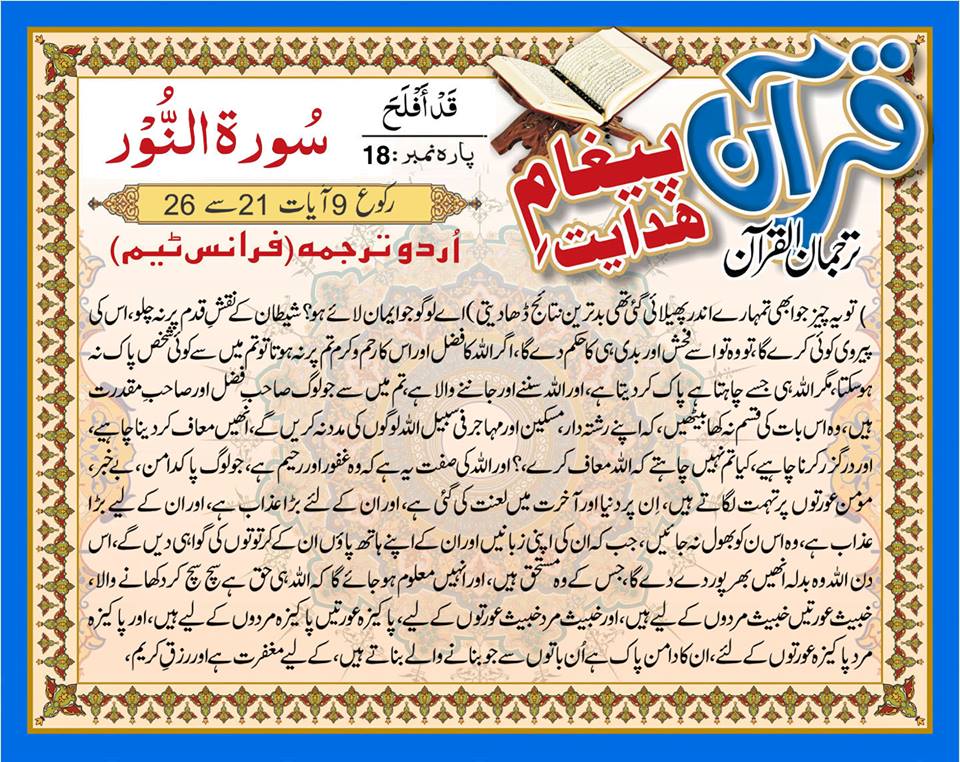 قرآن
پیغامِ
ھدایتِ
ترجمان القرآن
قَدْ أَفْلَحَ
پارہ نمبر:18
سُورۃ النُّوْر
رکوع 9 آیات 21 سے 26
اُردو ترجمہ (فرانس ٹیم)
) تو یہ چیز جو ابھی تمہارے اندر پھیلائی گئی تھی بدترین نتائج دکھا دیتی) اے لوگو جو ایمان لائے ہو؟ شیطان کے نقشِ قدم پر نہ چلو، اس کی
پیروی کوئی کرے گا، تو وہ تو اسے فحش اور بدی ہی کا حکم دے گا، اگر اللہ کا فضل اور اس کا رحم و کرم تم پر نہ ہوتا تو تم میں سے کوئی شخص پاک نہ
ہو سکتا، مگر اللہ ہی جسے چاہتا ہے پاک کر دیتا ہے، اور اللہ سننے اور جاننے والا ہے، تم میں سے جو لوگ صاحبِ فضل اور صاحبِ مقدرت
ہیں، وہ اس بات کی قسم نہ کھا بیٹھیں، کہ اپنے رشتہ دار، مسکین اور مہاجر فی سبیل اللہ لوگوں کی مدد نہ کریں گے، انھیں معاف کر دینا چاہیے،
اور درگزر کرنا چاہیے، کیا تم نہیں چاہتے کہ اللہ معاف کرے،؟ اور اللہ کی صفت یہ ہے کہ وہ غفور اور رحیم ہے، جو لوگ پاکدامن، بےخبر،
مؤمن عورتوں پر تہمت لگاتے ہیں، اِن پر دنیا اور آخرت میں لعنت کی گئی ہے، اور ان کے لئے بڑا عذاب ہے، اور ان کے لیے بڑا
عذاب ہے، وہ اس ن کو بھول نہ جائیں، جب کہ ان کی اپنی زبانیں اور ان کے اپنے ہاتھ پاؤں ان کے کرتوتوں کی گواہی دیں گے، اس
دن اللہ وہ بدلہ انھیں بھرپور دے دے گا، جس کے وہ مستحق ہیں، اور انہیں معلوم ہو جائے گا کہ اللہ ہی حق ہے سچ سچ کر دکھانے والا،
خبیث عورتیں خبیث مردوں کے لیے ہیں، اور خبیث مرد خبیث عورتوں کے لیے، پاکیزہ عورتیں پاکیزہ مردوں کے لیے ہیں، اور پاکیزہ
مرد پاکیزہ عورتوں کے لئے، ان کا دامن پاک ہے اُن باتوں سے جو بنانے والے بناتے ہیں، کے لیے مغفرت ہے اور رزقِ کریم،